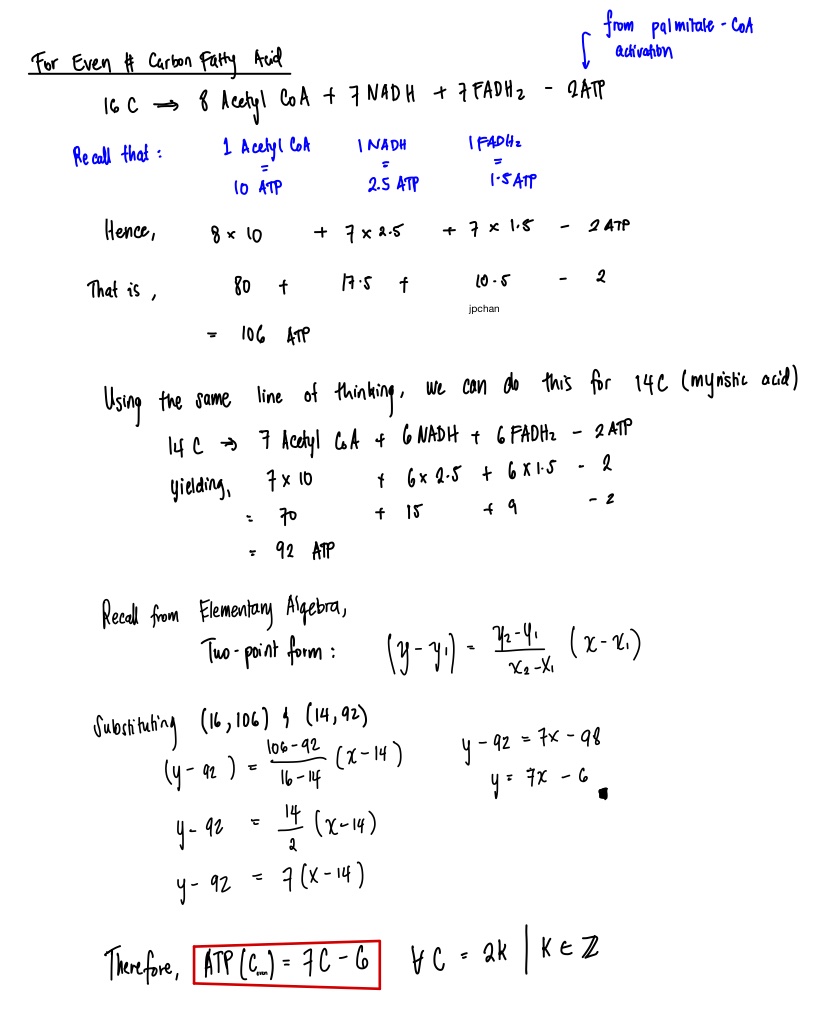 from palmitate-CoA
activation
For Even # Carbon Fatty Acid
16 C → 8 Acetyl CoA + 7 NADH + 7 FADH₂ - 2ATP
Recall that: 1 Acetyl CoA 1 NADH 1 FADH₂
= = =
10 ATP 2.5 ATP 1.5 ATP
Hence, 8 × 10 + 7 × 2.5 + 7 × 1.5 - 2 ATP
That is, 80 + 17.5 + 10.5 - 2
jpchan
= 106 ATP
Using the same line of thinking, we can do this for 14C (myristic acid)
14 C → 7 Acetyl CoA + 6 NADH + 6 FADH₂ - 2 ATP
yielding, 7 × 10 + 6 × 2.5 + 6 × 1.5 - 2
= 70 + 15 + 9 - 2
= 92 ATP
Recall from Elementary Algebra,
Two-point form: (y - y₁) = y₂-y₁/x₂-x₁ (x - x₁)
Substituting (16, 106) & (14, 92)
(y - 92) = 106-92/16-14 (x - 14)
y - 92 = 14/2 (x - 14)
y - 92 = 7(x - 14)
y - 92 = 7x - 98
y = 7x - 6
Therefore, ATP (C_even) = 7C - 6 ∀ C = 2k | k ∈ ℤ